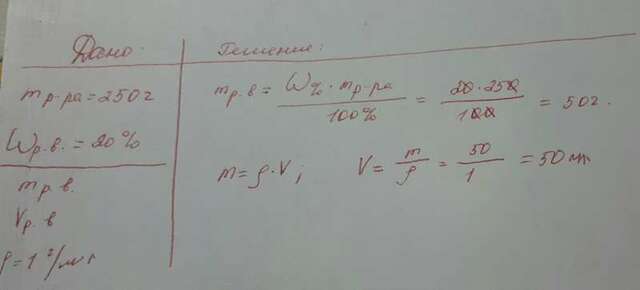 Дано:
mр-ра = 250г
Wр.в. = 20%
mр.в.
Vр.в
ρ = 1 г/мл
Решение:
mр.в = W% · mр-ра / 100% = 20 · 250 / 100 = 50г.
m = ρ · V; V = m / ρ = 50 / 1 = 50 мл